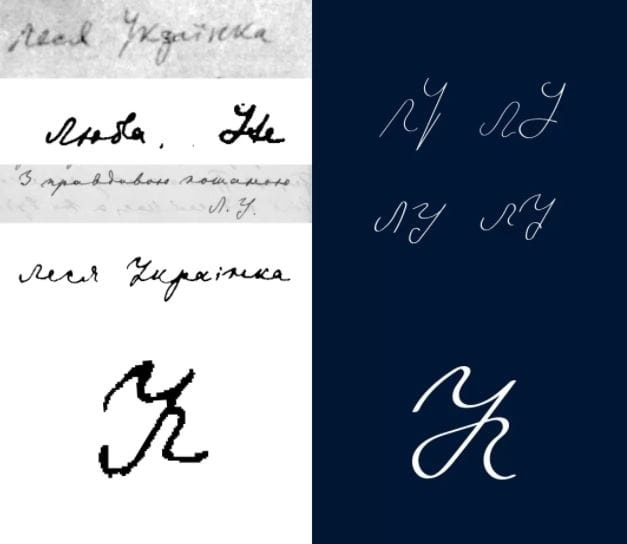 Леся Українка
Люба, Не
З правдивою пошаною
Л. У.
Леся Українка
Ук
ЛУ ЛУ
ЛУ ЛУ
Ук